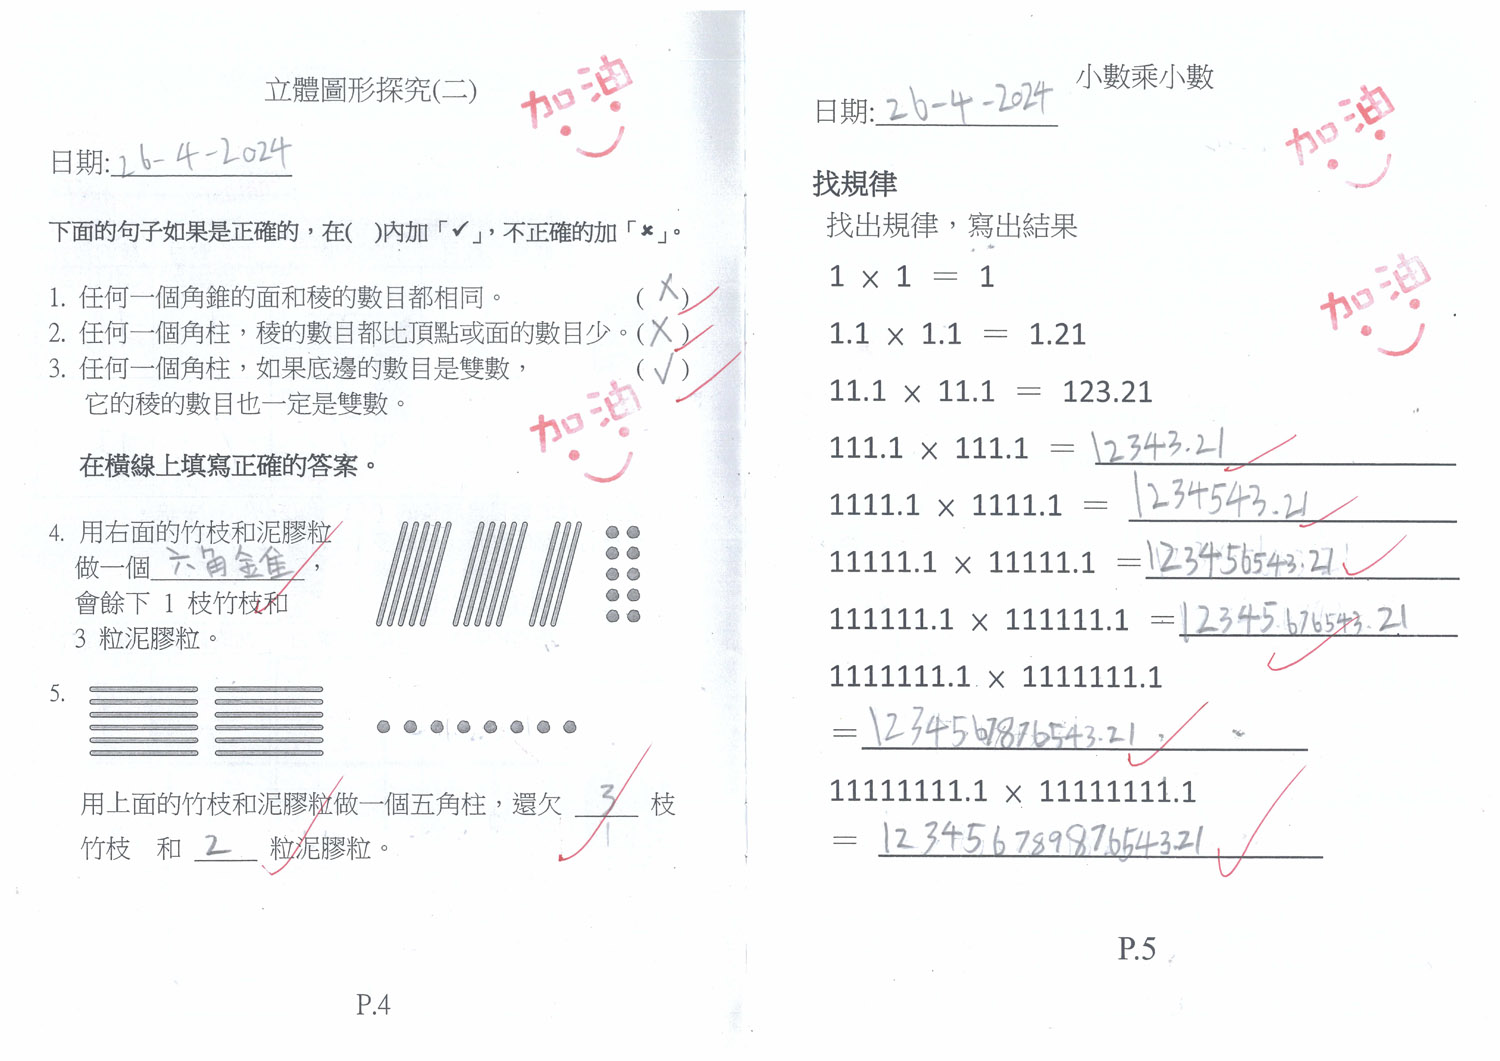 立體圖形探究(二)
加油
日期:26-4-2024
下面的句子如果是正確的，在( )內加「✔」，不正確的加「✖」。
1. 任何一個角錐的面和稜的數目都相同。 ( X )
2. 任何一個角柱，稜的數目都比頂點或面的數目少。( X )
3. 任何一個角柱，如果底邊的數目是雙數， ( ✓ )
它的稜的數目也一定是雙數。
加油
在橫線上填寫正確的答案。
4. 用右面的竹枝和泥膠粒
做一個六角錐，
會餘下 1 枝竹枝和
3 粒泥膠粒。
5.
用上面的竹枝和泥膠粒做一個五角柱，還欠 3 枝
竹枝 和 2 粒泥膠粒。
P.4
小數乘小數
日期:26-4-2024
加油
找規律
找出規律，寫出結果
1 × 1 = 1
加油
1.1 × 1.1 = 1.21
11.1 × 11.1 = 123.21
111.1 × 111.1 = 12343.21
1111.1 × 1111.1 = 1234543.21
11111.1 × 11111.1 = 123456543.21
111111.1 × 111111.1 = 12345676543.21
1111111.1 × 1111111.1
= 1234567876543.21
11111111.1 × 11111111.1
= 123456789876543.21
P.5